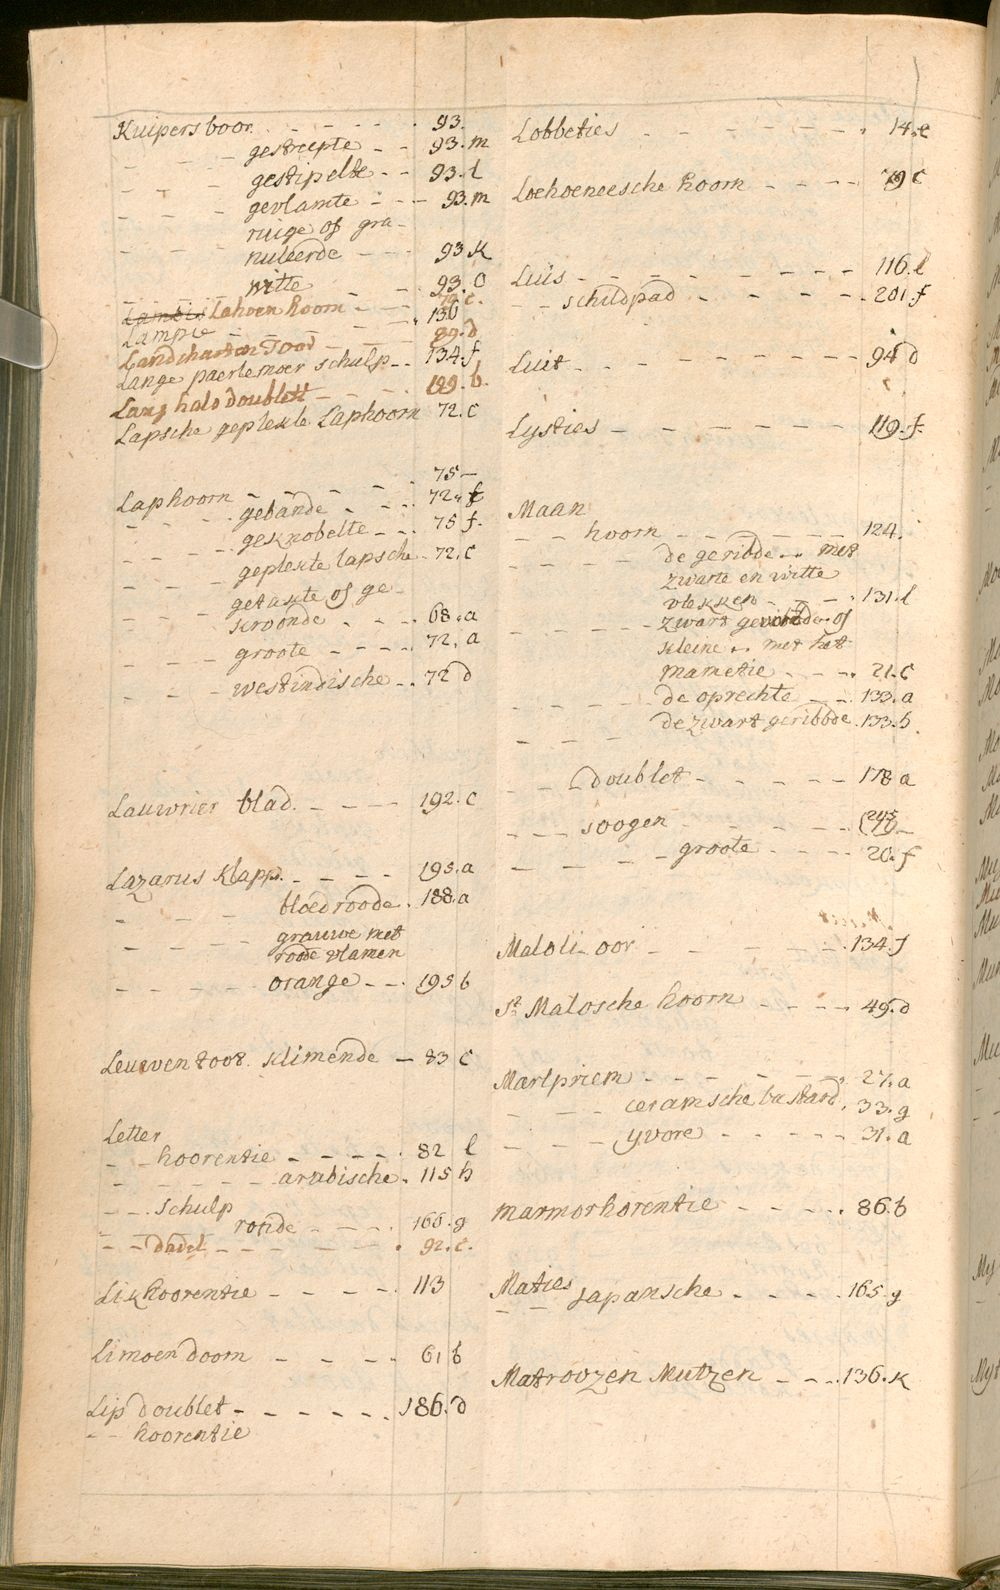 Kuipersboor. - - - - - 93.
- - - gestreepte - - 93. m
- - - gestipelte - - 93. l
- - - gevlamte - - - 93. m
- - - ruige of gra-
nuleerde - - - 93 k
witte - - 93. o
Lambis Lahoen hoorn - - - 79. c.
Lampie - - - - - 130
Landcharten Toot - - - - 89. d
Lange paerlemoer schulp - - 134. f
Lang hals doublett - - - 199. b.
Lapsche geplekte Laphoorn 72. c
75 -
Laphoorn - - - - - -
- - - - gebande - - - 72. f
- - - - geknobelte - - - 75 f.
- - - geplekte lapsche - - 72. c
- - - getakte of ge-
kroonde - - - - 68. a
- - - groote - - - - - 72. a
- - - westindische - - 72 d
Lauwrier blad. - - - - 192. c
Lazarus Klapp. - - - - 195. a
- - - bloedroode. 188. a
- - - grauwe met
roode vlamen
- - - - orange - - - 195 b
Leuwen toot. klimende - 83 c
Letter
- - hoorentie - - - - - 82 l
- - - - - - arabische. 115 h
- - - schulp
ronde - - - - 166. g
- - dadel - - - - - - - 92. c.
Likhoorentie - - - - - 113
Limoen doorn - - - - 61 b
Lip doublet - - - - - - 186. d
- - hoorentie
Lobbeties - - - - - - - - 14. e
Loehoeneesche hoorn - - - - 79 c
Luis - - - - - - - - 116. l
- - schildpad - - - - - - 201. f
Luit - - - - - - - - - 94 d
Lysties - - - - - - - 119. f.
Maan
- - hoorn - - - - - - - 124.
- - - - de geribde - - met
zwarte en witte
vlekken - - - - 131. l
- - - - zwart of
kleine - - met het
mametie - - - 21. c
- - - - de oprechte - - - 133. a
- - - - de zwart geribbde. 133. b.
- - - doublet - - - - - - 178 a
- - - toogen - - - - - - -
- - - - - groote - - - - - 20. f
Maloli oor - - - - - - - 134. f
St. Malosche hoorn - - - - - 49. d
Marlpriem - - - - - - - 27. a
- - - ceramsche bastard. 33. g
- - - yvore - - - - - - 31. a
marmorhorentie - - - - - 86. b
Maties
- - Japansche - - - - - 165. g
Matroozen Mutzen - - - - 136. k